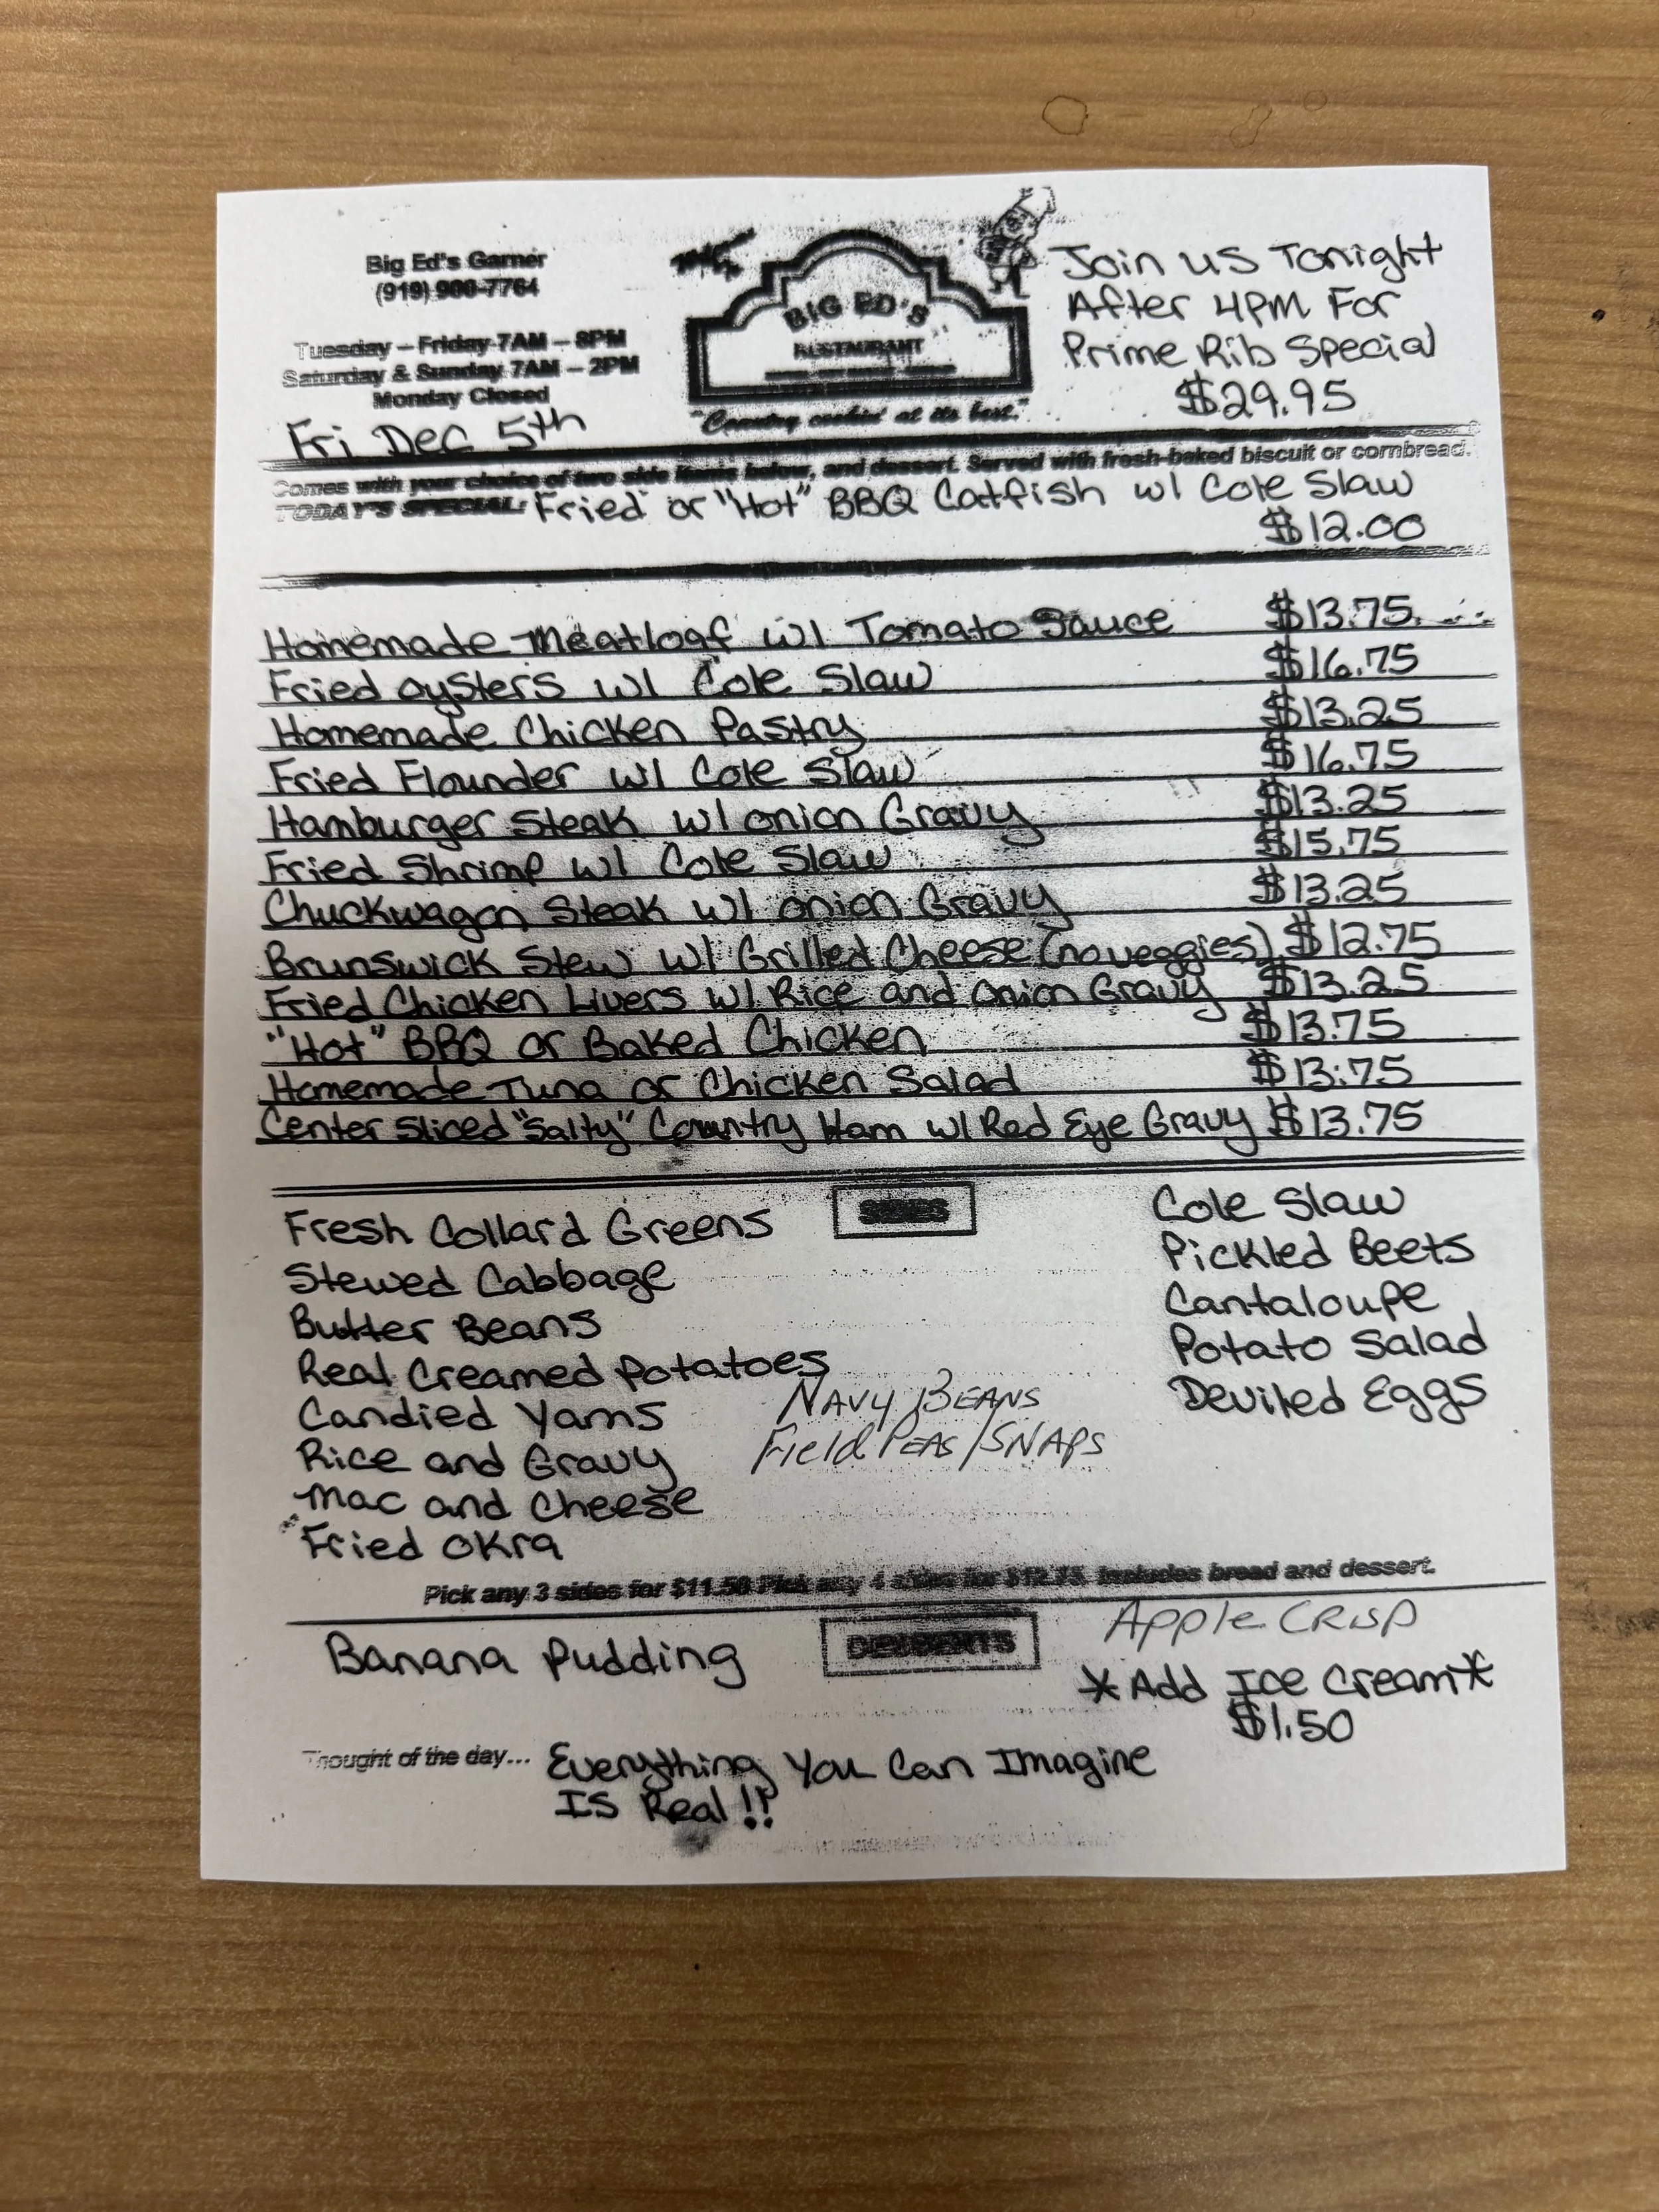 Big Ed's Garner
(919) 900-7764
Tuesday – Friday 7AM – 8PM
Saturday & Sunday 7AM – 2PM
Monday Closed
Fri Dec 5th
BIG ED'S
RESTAURANT
"Country cookin' at its best."
Join us Tonight
After 4PM For
Prime Rib Special
$29.95
Comes with your choice of two side items below, and dessert. Served with fresh-baked biscuit or cornbread.
TODAY'S SPECIAL: Fried or "Hot" BBQ Catfish w/ Cole Slaw
$12.00
Homemade Meatloaf w/ Tomato Sauce $13.75
Fried Oysters w/ Cole Slaw $16.75
Homemade Chicken Pastry $13.25
Fried Flounder w/ Cole Slaw $16.75
Hamburger Steak w/ onion Gravy $13.25
Fried Shrimp w/ Cole Slaw $15.75
Chuckwagon Steak w/ onion Gravy $13.25
Brunswick Stew w/ Grilled Cheese (no veggies) $12.75
Fried Chicken Livers w/ Rice and Onion Gravy $13.25
"Hot" BBQ or Baked Chicken $13.75
Homemade Tuna or Chicken Salad $13.75
Center Sliced "Salty" Country Ham w/ Red Eye Gravy $13.75
SIDES
Fresh Collard Greens
Stewed Cabbage
Butter Beans
Real Creamed Potatoes
Candied Yams
Rice and Gravy
Mac and Cheese
Fried Okra
Navy Beans
Field Peas/Snaps
Cole Slaw
Pickled Beets
Cantaloupe
Potato Salad
Deviled Eggs
Pick any 3 sides for $11.50 Pick any 4 sides for $12.75. Includes bread and dessert.
DESSERTS
Banana Pudding
Apple Crisp
*Add Ice Cream*
$1.50
Thought of the day... Everything You Can Imagine
Is Real!!